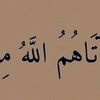 آتَاهُمُ اللَّهُ